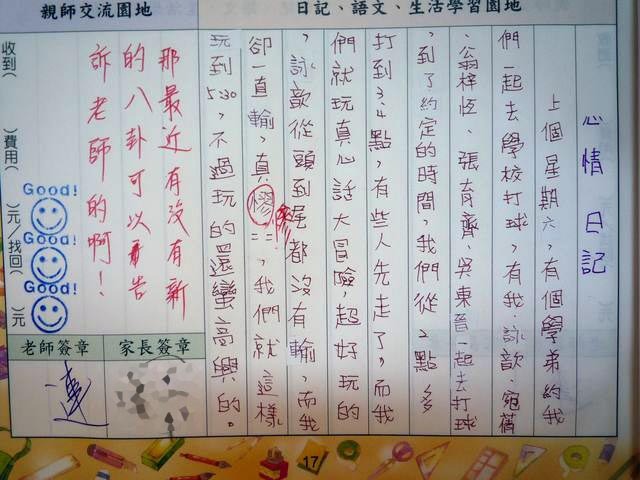 日記、語文、生活學習園地
心情日記
上個星期六，有個學弟約我
們一起去學校打球，有我、詠歆、宛蒨
、翁梓恆、張育齊、吳東晉一起去打球
，到了約定的時間，我們從2點多
打到3、4點，有些人先走了，而我
們就玩真心話大冒險，超好玩的
，詠歆從頭到尾都沒有輸，而我
卻一直輸，真慘二二，我們就這樣
慘
玩到5:30，不過玩的還蠻高興的。
親師交流園地
那最近有沒有新
的八卦可以告
訴老師的啊！
收到（ ）費用（ ）元/找回（ ）元
Good!
Good!
Good!
家長簽章
老師簽章
17